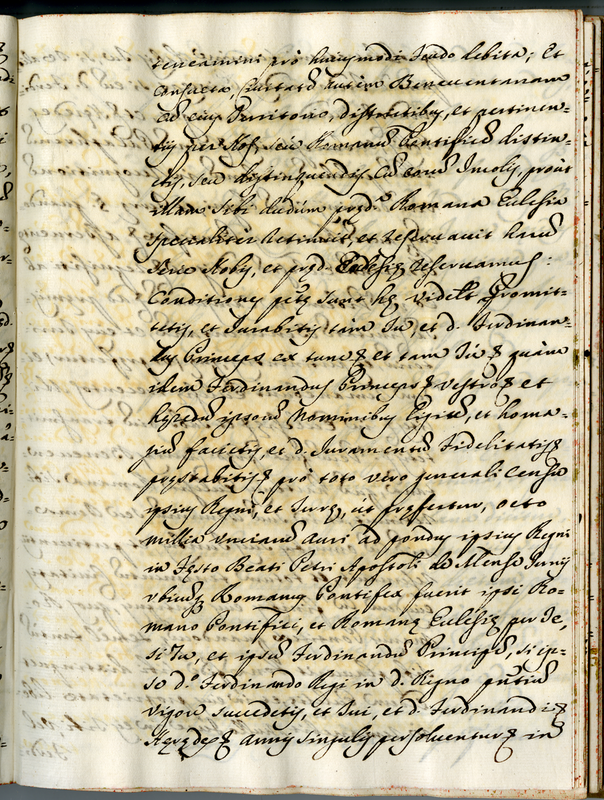 teneamini pro huiusmodi feudo debita; Et
Ciuitatẽ autem Beneuentanam
cũ eius Territorio, districtibus, et pertinen-
tijs per Nos, seu Romanũ Pontificẽ distin-
ctis, seu distinguendis Cũ eorũ Incolis, prout
illam sibi dudum pręd.ª Romana Ecclesia
specialiter retinuit, et reseruauit harũ
serie Nobis, et pręd. Ecclesię reseruamus:
Conditiones sunt hę videlt Promit-
tetis, et Jurabitis tàm Tu, et d. Ferdinan-
dus Princeps ex tunc et tam Tu quàm
idem Ferdinandus Princeps vestro et
hęredũ ipsorũ Nominibus ligiũ, et homa-
giũ facietis, et d. Juramentũ Fidelitatis
pręstabitis pro toto vero generali Censu
ipsius Regni, et Terrę, ut pręfertur, octo
millia unciarũ auri ad pondus ipsius Regni
in Festo Beati Petri Apostoli de Mense Junij
vbicũq Romanus Pontifex fuerit ipsi Ro-
mano Pontifici, et Romanę Ecclesię per Te,
si Tu, et ipsũ Ferdinandũ Principẽ, si ip-
se d.º Ferdinando Regi in d. Regno pñtiũ
vigore succedetis, et Tui, et d. Ferdinandi
Hęredes annis singulis persoluentur in